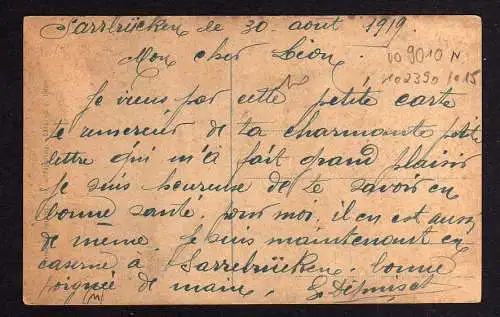 Sarrbrücken le 30 août 1919.
Mon cher Léon.
00 9010 N
102390 1015
Je viens par cette petite carte
te remercier de ta charmante petite
lettre qui m'a fait grand plaisir
Je suis heureuse de te savoir en
bonne santé. pour moi, il en est aussi
de même. Je suis maintenant en
caserne à Sarrebrücken. bonne
poignée de main.